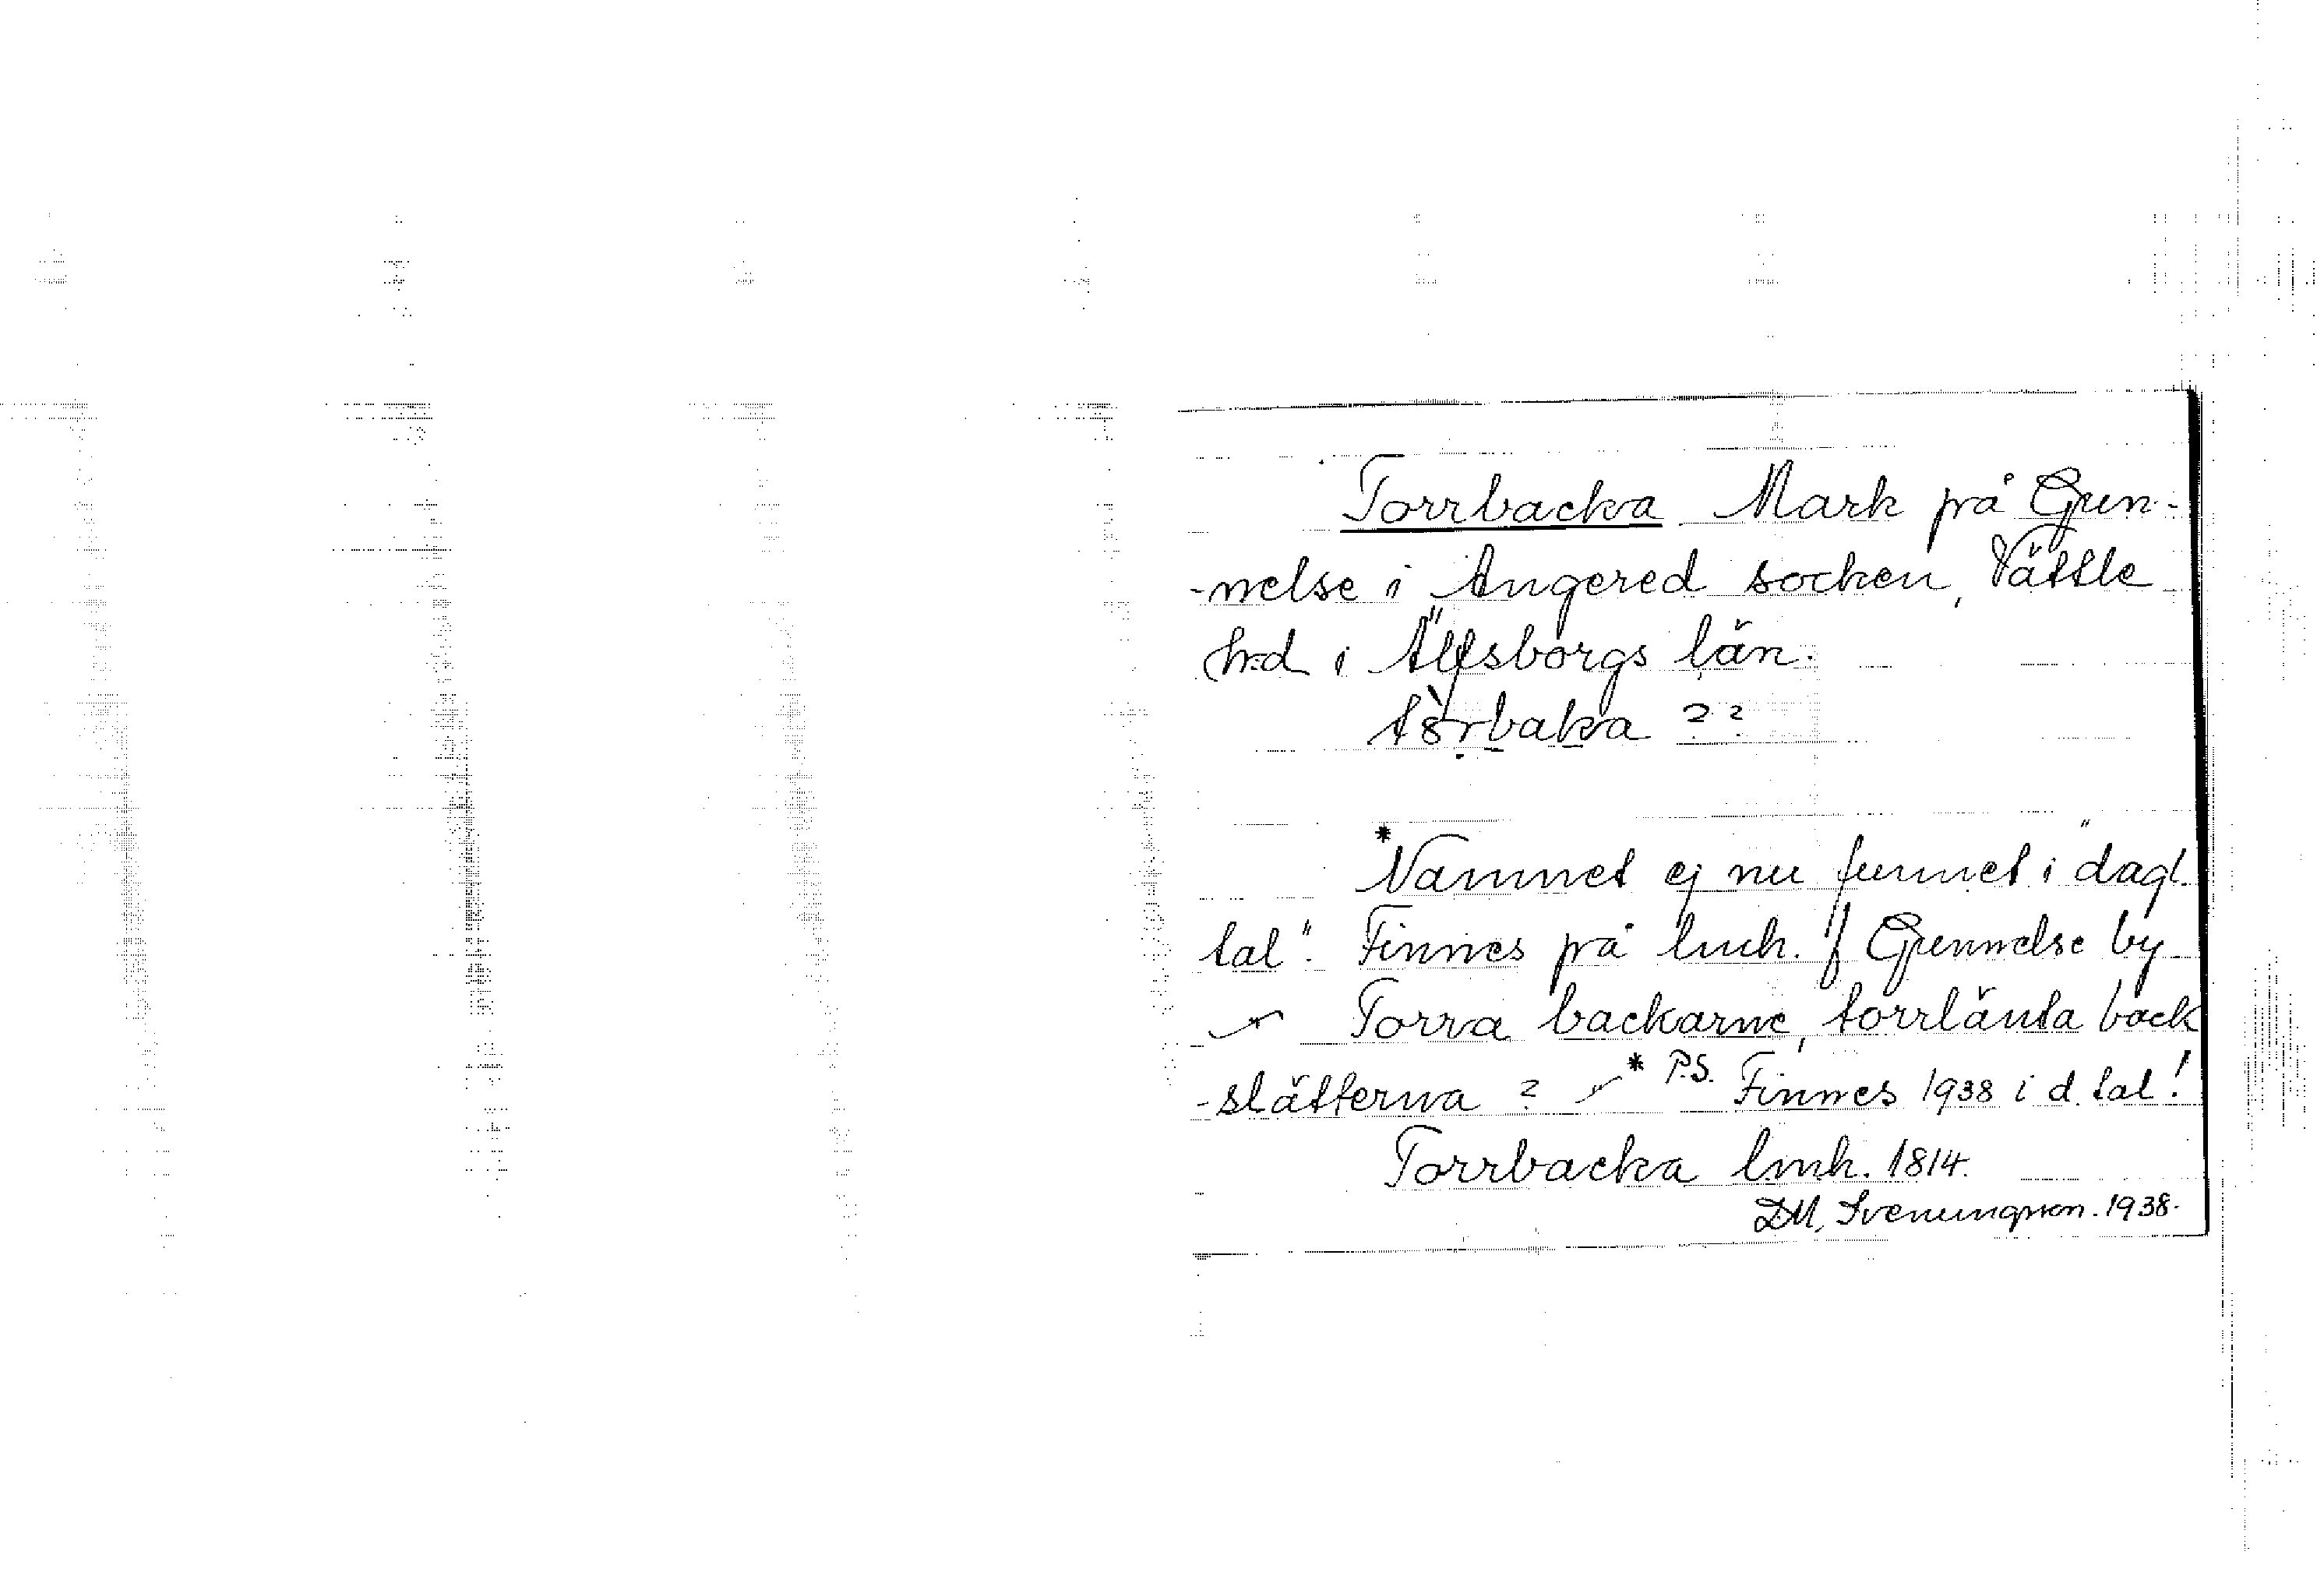 Torrbacka Mark på Gun-
-nelse i Angered socken, Vättle
hrd i Älfsborgs län.
tòrbaka ??
*Namnet ej nu funnet i "dagl.
tal". Finnes på lmk. f Gunnelse by
Torra backarne, torrlänta back
-slätterna ? * P.S. Finnes 1938 i d. tal!
Torrbacka lmk. 1814.
DM, Svenungsson. 1938.